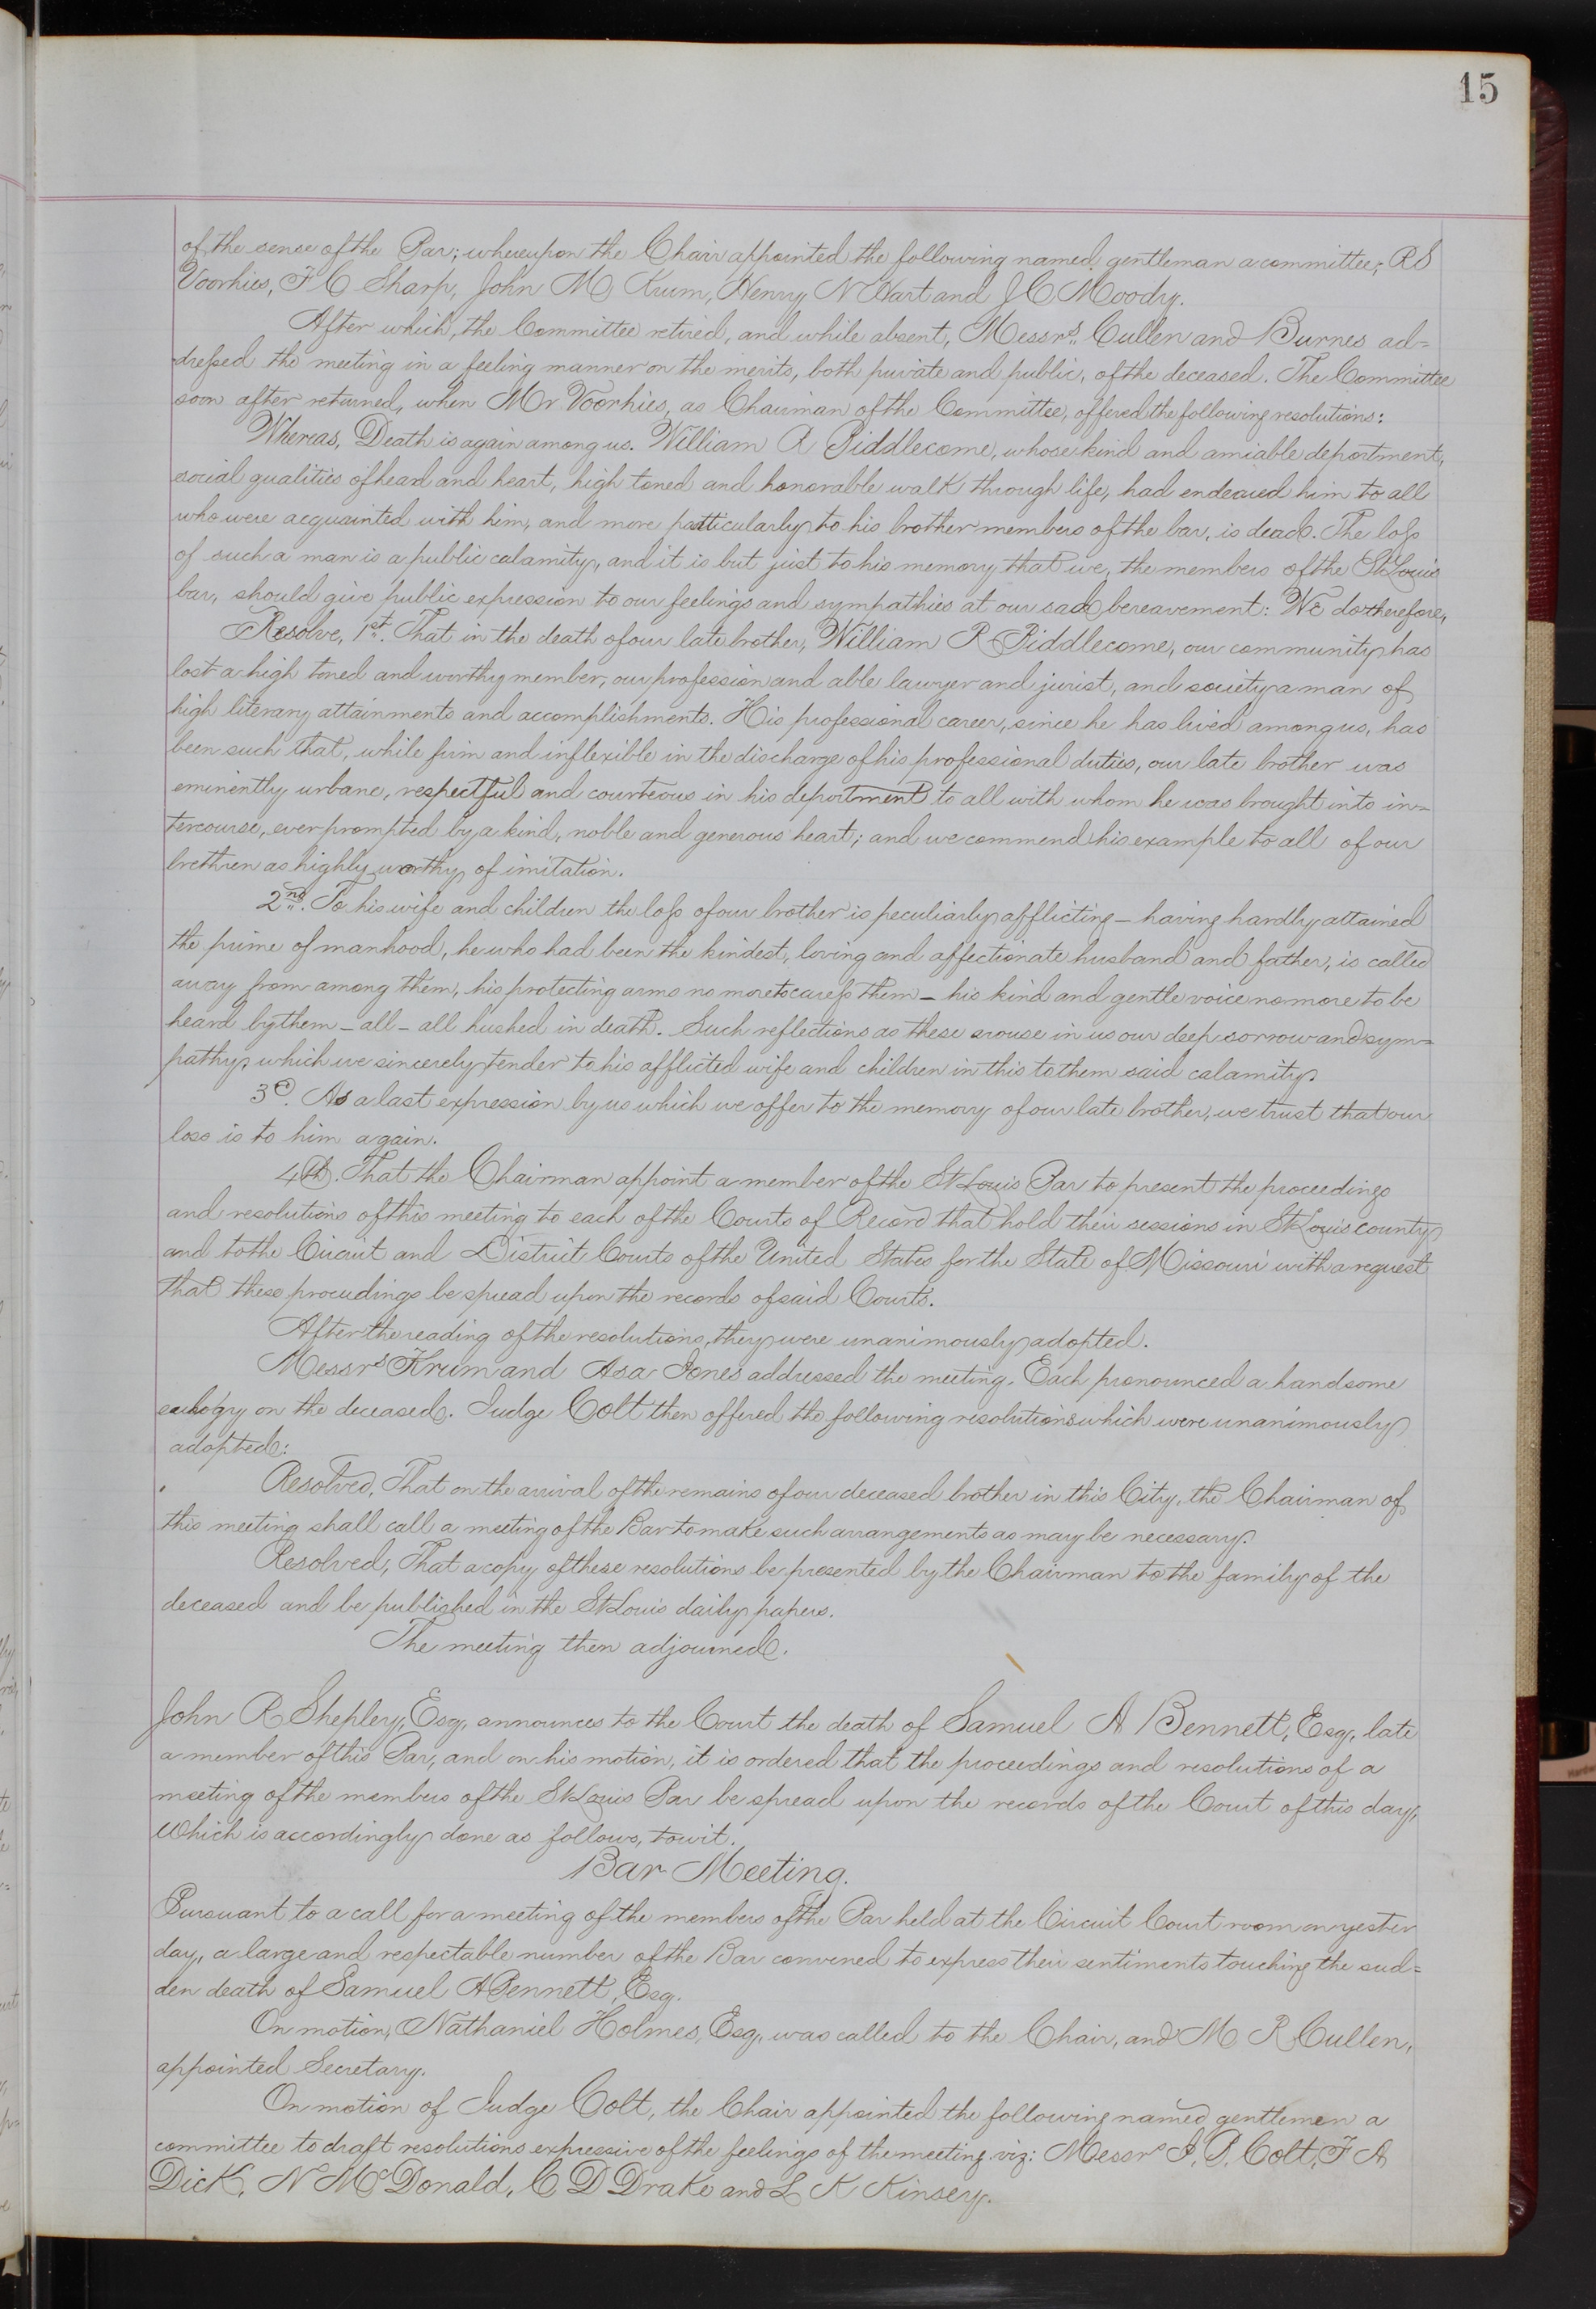 15
of the sense of the Bar; whereupon the Chair appointed the following named gentleman a committee; R S
Voorhies, F C Sharp, John M Krum, Henry N Hart and J C Moody.
After which, the Committee retired, and while absent, Messrs. Cullen and Burnes ad=
dressed the meeting in a feeling manner on the merits, both private and public, of the deceased. The Committee
soon after returned, when Mr Voorhies, as Chairman of the Committee, offered the following resolutions:
Whereas, Death is again among us. William R Biddlecome, whose kind and amiable deportment,
social qualities of head and heart, high toned and honorable walk through life, had endeared him to all
who were acquainted with him, and more particularly to his brother members of the bar, is dead. The loss
of such a man is a public calamity, and it is but just to his memory that we, the members of the St Louis
bar, should give public expression to our feelings and sympathies at our sad bereavement: We do therefore,
Resolve, 1st. That in the death of our late brother, William R Biddlecome, our community has
lost a high toned and worthy member, our profession and able lawyer and jurist, and society a man of
high literary attainments and accomplishments. His professional career, since he has lived among us, has
been such that, while firm and inflexible in the discharge of his professional duties, our late brother was
eminently urbane, respectful and courteous in his deportment to all with whom he was brought into in=
tercourse, ever prompted by a kind, noble and generous heart; and we commend his example to all of our
brethren as highly worthy of imitation.
2nd. To his wife and children the loss of our brother is peculiarly afflicting — having hardly attained
the prime of manhood, he who had been the kindest, loving and affectionate husband and father, is called
away from among them, his protecting arms no more to caress them — his kind and gentle voice no more to be
heard by them — all — all hushed in death. Such reflections as these arouse in us our deep sorrow and sym=
pathy, which we sincerely tender to his afflicted wife and children in this to them said calamity.
3d. As a last expression by us which we offer to the memory of our late brother, we trust that our
loss is to him again.
4th. That the Chairman appoint a member of the St Louis Bar to present the proceedings
and resolutions of this meeting to each of the Courts of Record that hold their sessions in St Louis county,
and to the Circuit and District Courts of the United States for the State of Missouri with a request
that these proceedings be spread upon the records of said Courts.
After the reading of the resolutions, they were unanimously adopted.
Messrs Krum and Asa Jones addressed the meeting. Each pronounced a handsome
eulogy on the deceased. Judge Colt then offered the following resolutions which were unanimously
adopted:
Resolved, That on the arrival of the remains of our deceased brother in this City, the Chairman of
this meeting shall call a meeting of the Bar to make such arrangements as may be necessary.
Resolved, That a copy of these resolutions be presented by the Chairman to the family of the
deceased and be published in the St Louis daily papers.
The meeting then adjourned.
John R Shepley, Esq, announces to the Court the death of Samuel A Bennett, Esq, late
a member of this Bar, and on his motion, it is ordered that the proceedings and resolutions of a
meeting of the members of the St Louis Bar be spread upon the records of the Court of this day,
Which is accordingly done as follows, towit.
Bar Meeting.
Pursuant to a call for a meeting of the members of the Bar held at the Circuit Court room on yester
day, a large and respectable number of the Bar convened to express their sentiments touching the sud=
den death of Samuel A Bennett, Esq.
On motion, Nathaniel Holmes, Esq, was called to the Chair, and M R Cullen,
appointed Secretary.
On motion of Judge Colt, the Chair appointed the following named gentlemen a
committee to draft resolutions expressive of the feelings of the meeting viz: Messrs J. P. Colt, F A
Dick, N McDonald, C D Drake and L K Kinsey.